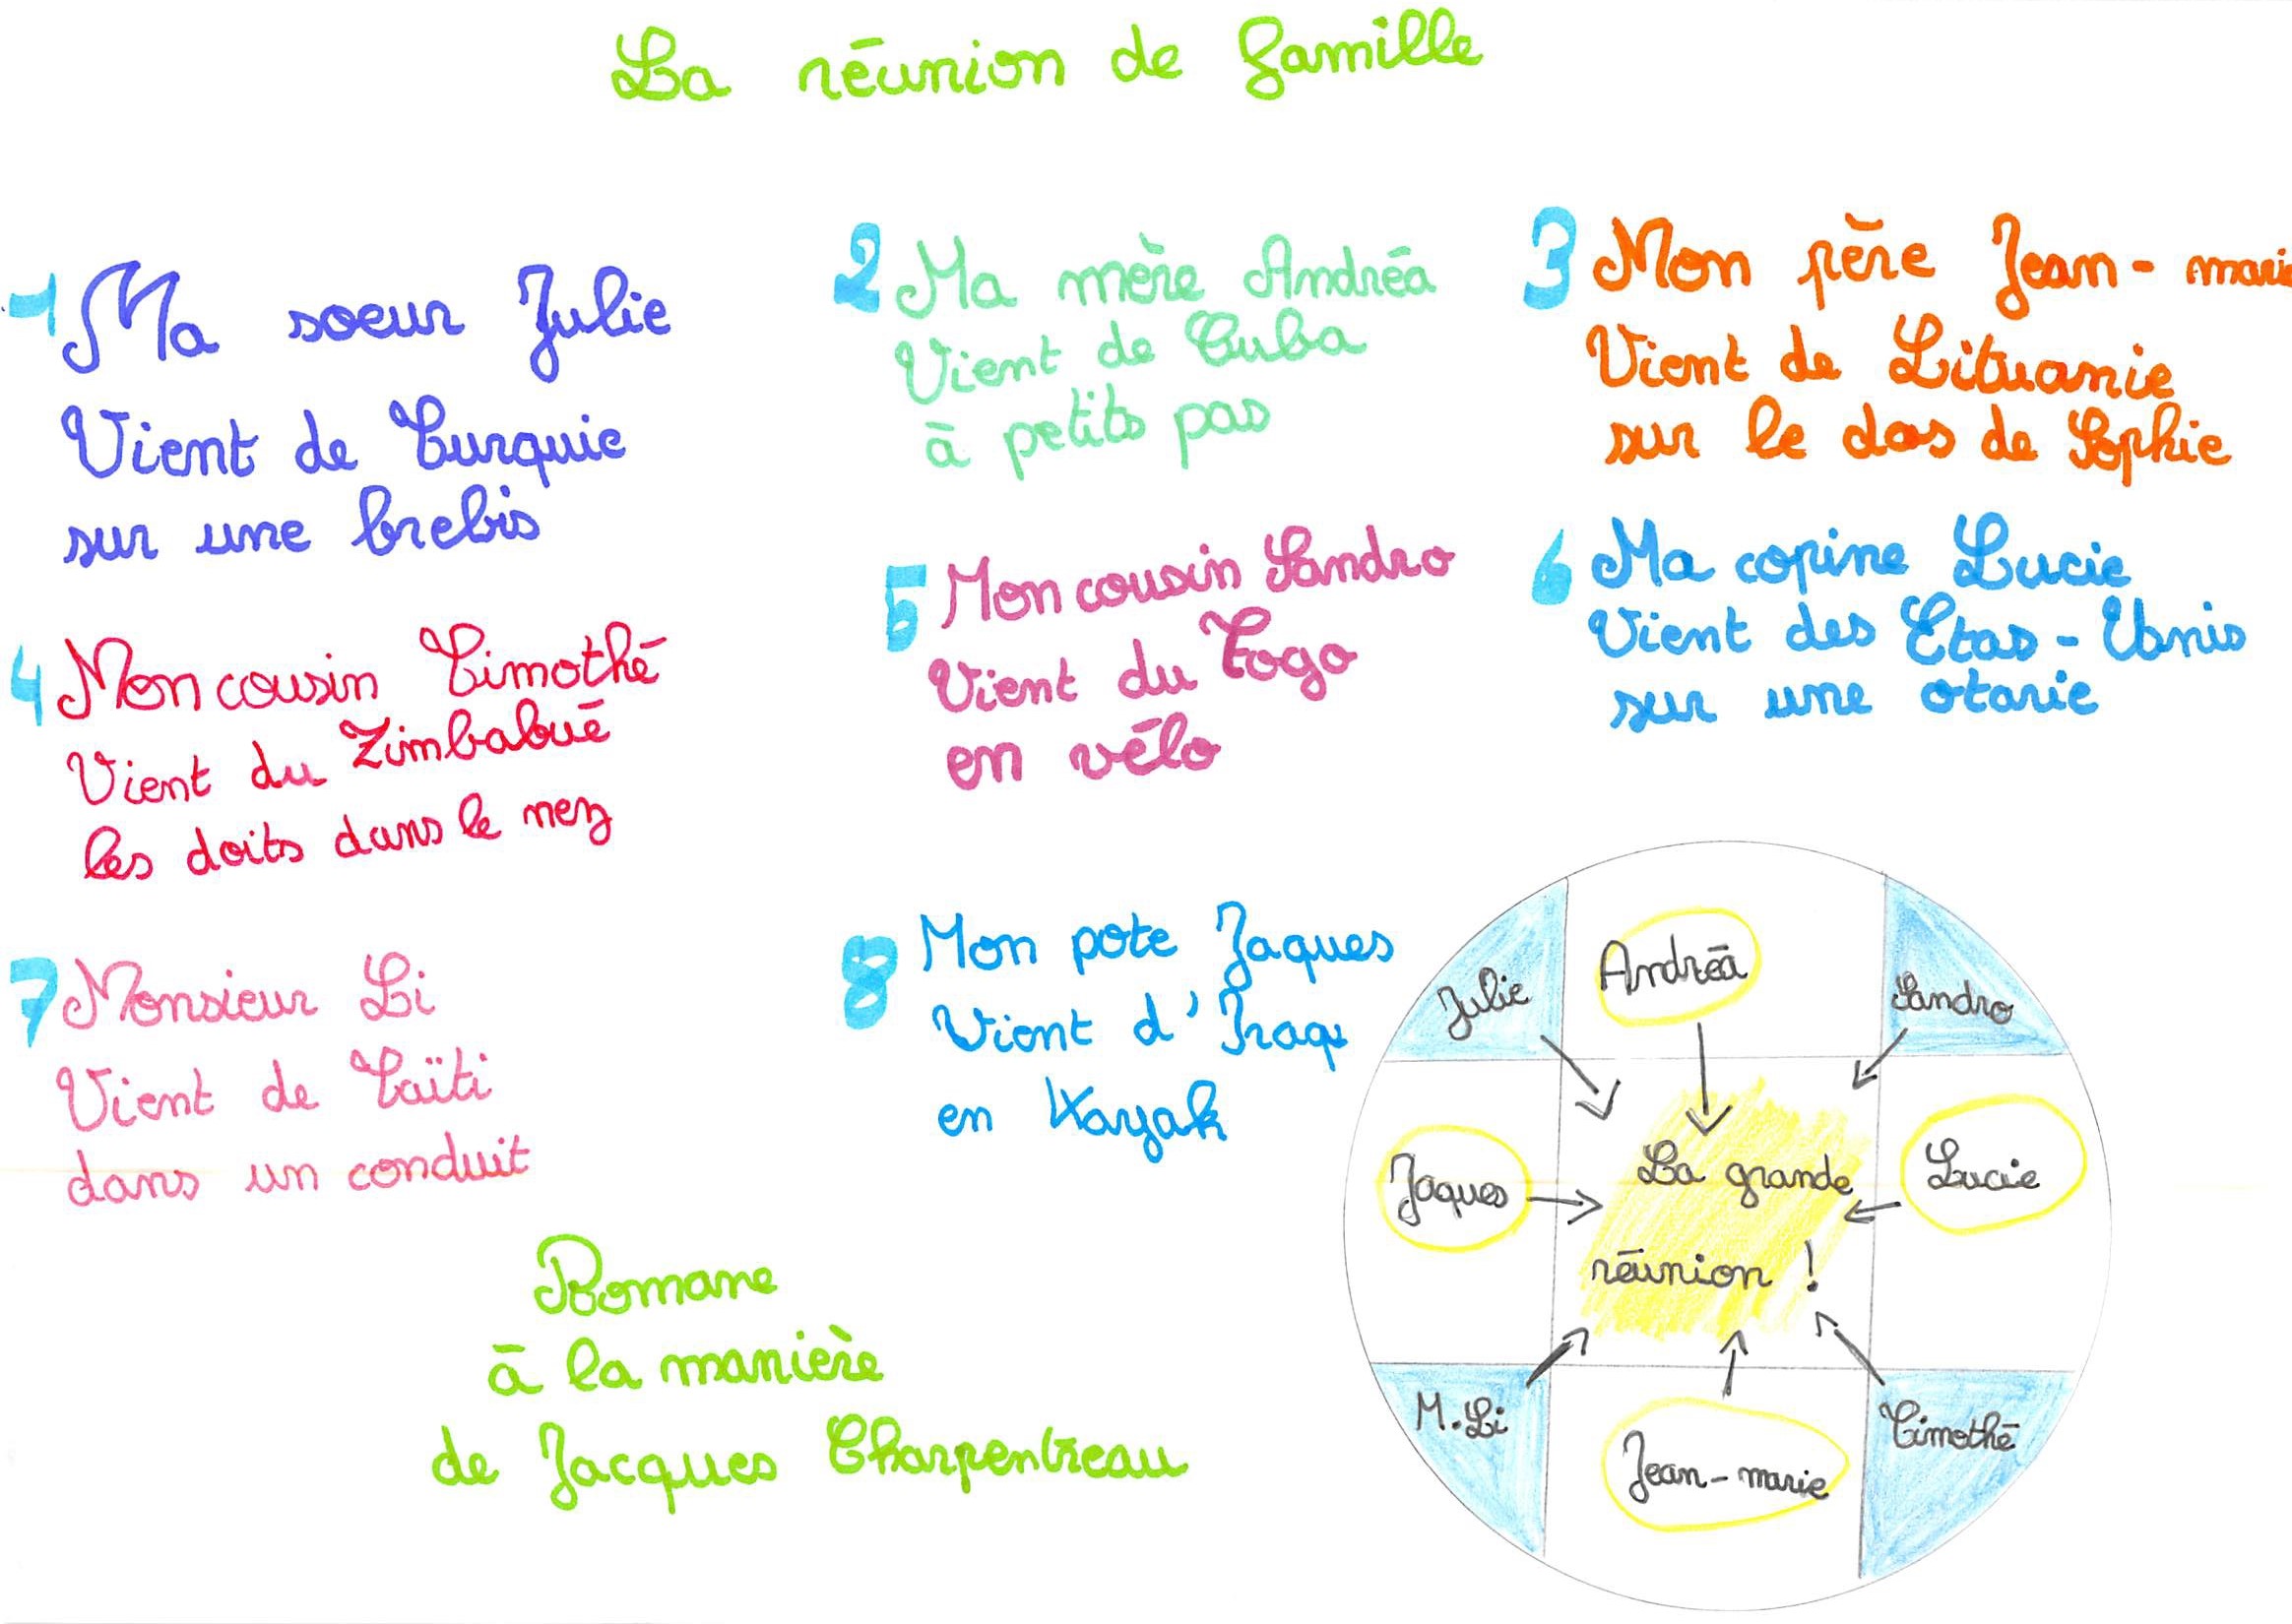 La réunion de famille
1 Ma soeur Julie
Vient de Turquie
sur une brebis
2 Ma mère Andréa
Vient de Cuba
à petits pas
3 Mon père Jean-marie
Vient de Lituanie
sur le dos de Sophie
4 Mon cousin Timothé
Vient du Zimbabué
les doits dans le nez
5 Mon cousin Sandro
Vient du Togo
en vélo
6 Ma copine Lucie
Vient des Etas-Unis
sur une otarie
7 Monsieur Li
Vient de Taïti
dans un conduit
8 Mon pote Jaques
Vient d'Iraq
en Kayak
Romane
à la manière
de Jacques Charpentreau
Julie
Andréa
Sandro
Jaques
La grande
réunion !
Lucie
M. Li
Jean-marie
Timothé